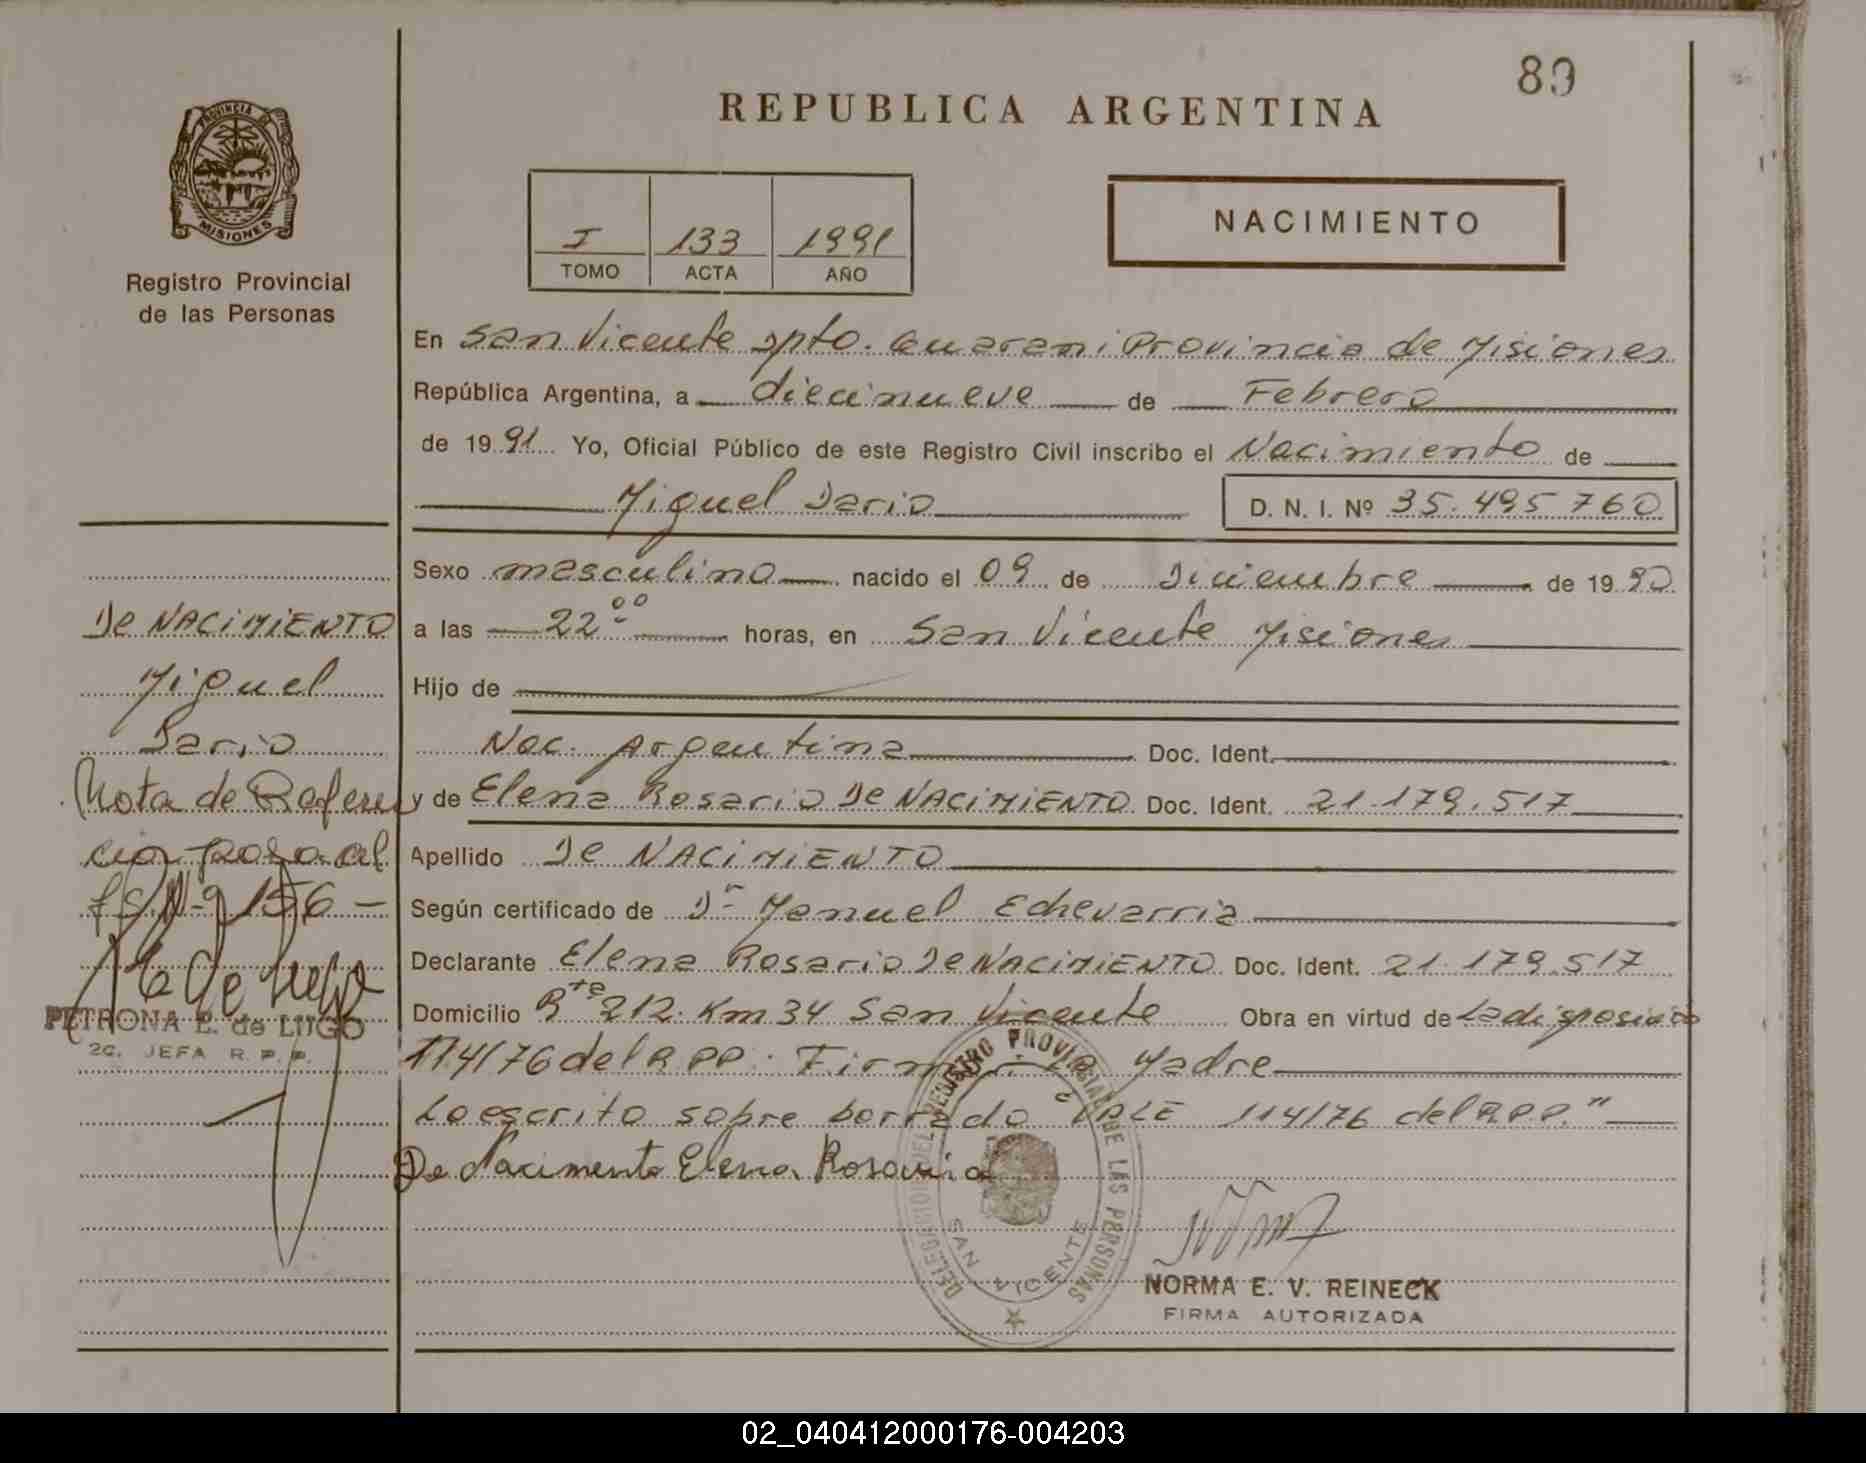 89
REPUBLICA ARGENTINA
PROVINCIA DE
MISIONES
Registro Provincial
de las Personas
I 133 1991
TOMO ACTA AÑO
NACIMIENTO
En San Vicente Dpto. Guarani Provincia de Misiones
República Argentina, a diecinueve de Febrero
de 1991 Yo, Oficial Público de este Registro Civil inscribo el Nacimiento de
Miguel Dario D. N. I. Nº 35.495760
Sexo masculino nacido el 09 de Diciembre de 1990
a las 22 00 horas, en San Vicente Misiones
Hijo de
Nac. Argentina Doc. Ident.
y de Elena Rosario De NACIMIENTO Doc. Ident. 21.179.517
Apellido De NACIMIENTO
Según certificado de Dr Manuel Echevarria
Declarante Elena Rosario De NACIMIENTO Doc. Ident. 21.179.517
Domicilio Rta 212. Km 34 San Vicente Obra en virtud de La disposición
114/76 del R.P.P. Firma La Madre
Lo escrito sobre borrado VALE 114/76 del R.P.P."
De Nacimento Elena Rosario
DELEGACION DEL REGISTRO PROVINCIAL DE LAS PERSONAS
SAN VICENTE
NORMA E. V. REINECK
FIRMA AUTORIZADA
De NACIMIENTO
Miguel
Dario
Nota de Referen
cia paso al
fs. Nº 156 -
PETRONA E. de LUGO
2ª. JEFA R. P. P.
02_040412000176-004203